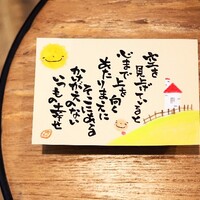 空を
見上げていると
心まで上を向く
あたりまえに
そこにある
かけがえのない
いつもの幸せ